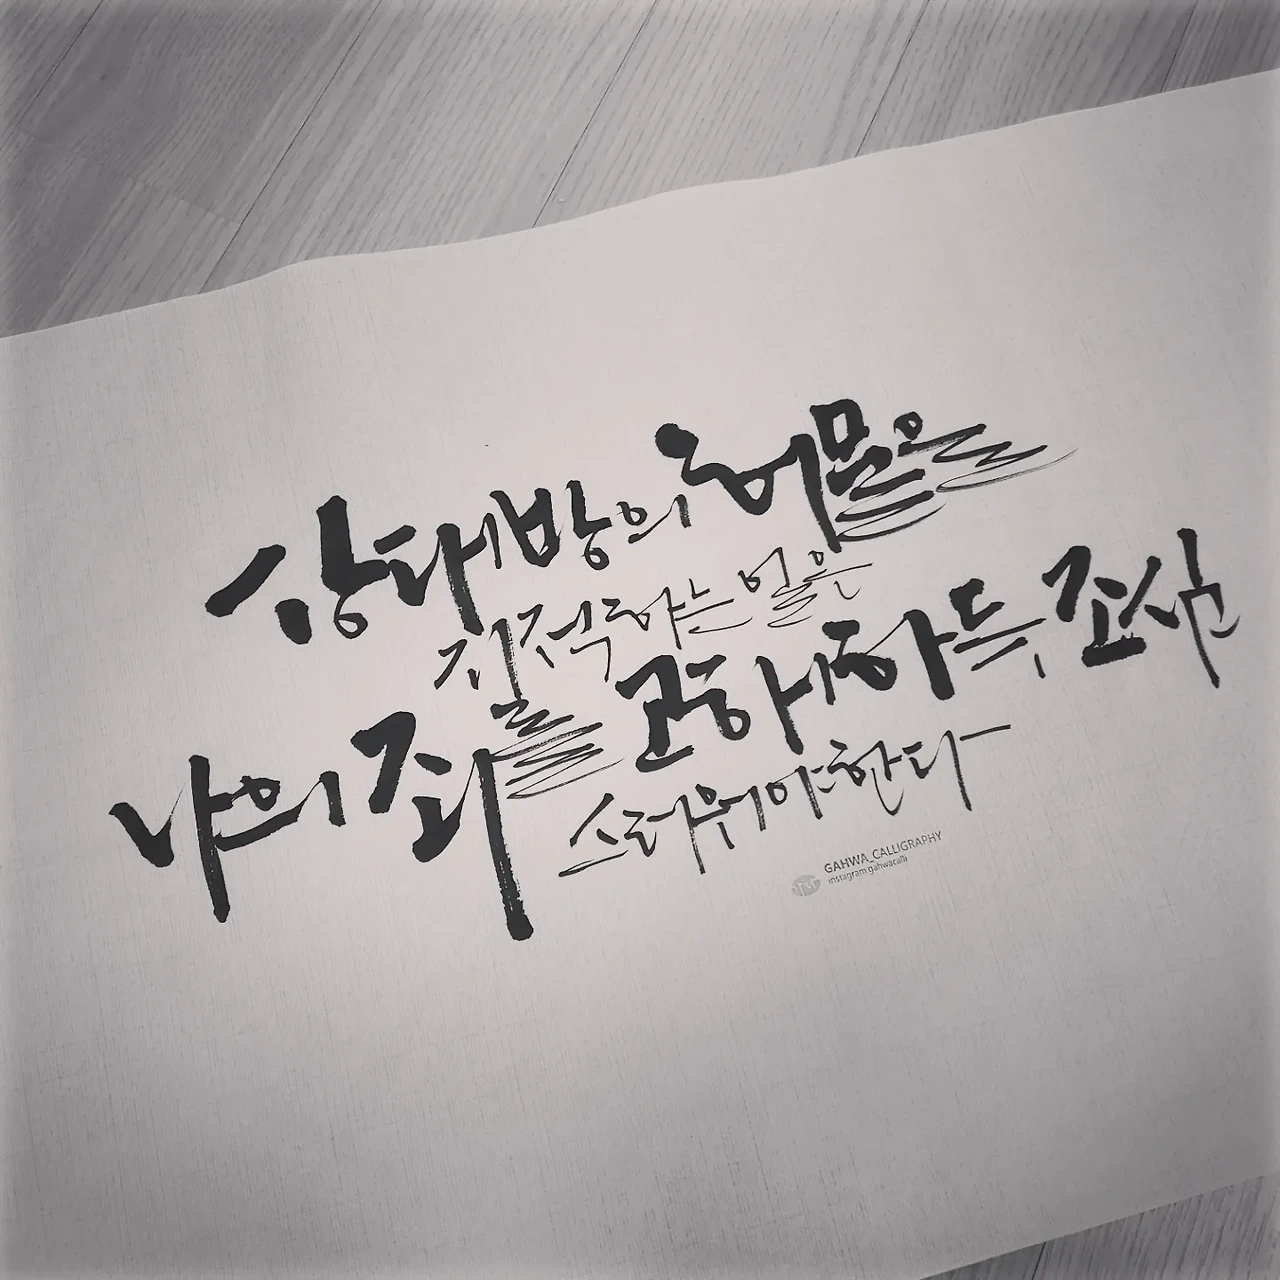 상대방의 허물을
지적하는 일은
나의 죄를 고해하듯 조심
스러워야 한다
GAHWA_CALLIGRAPHY
instagram:gahwacalli